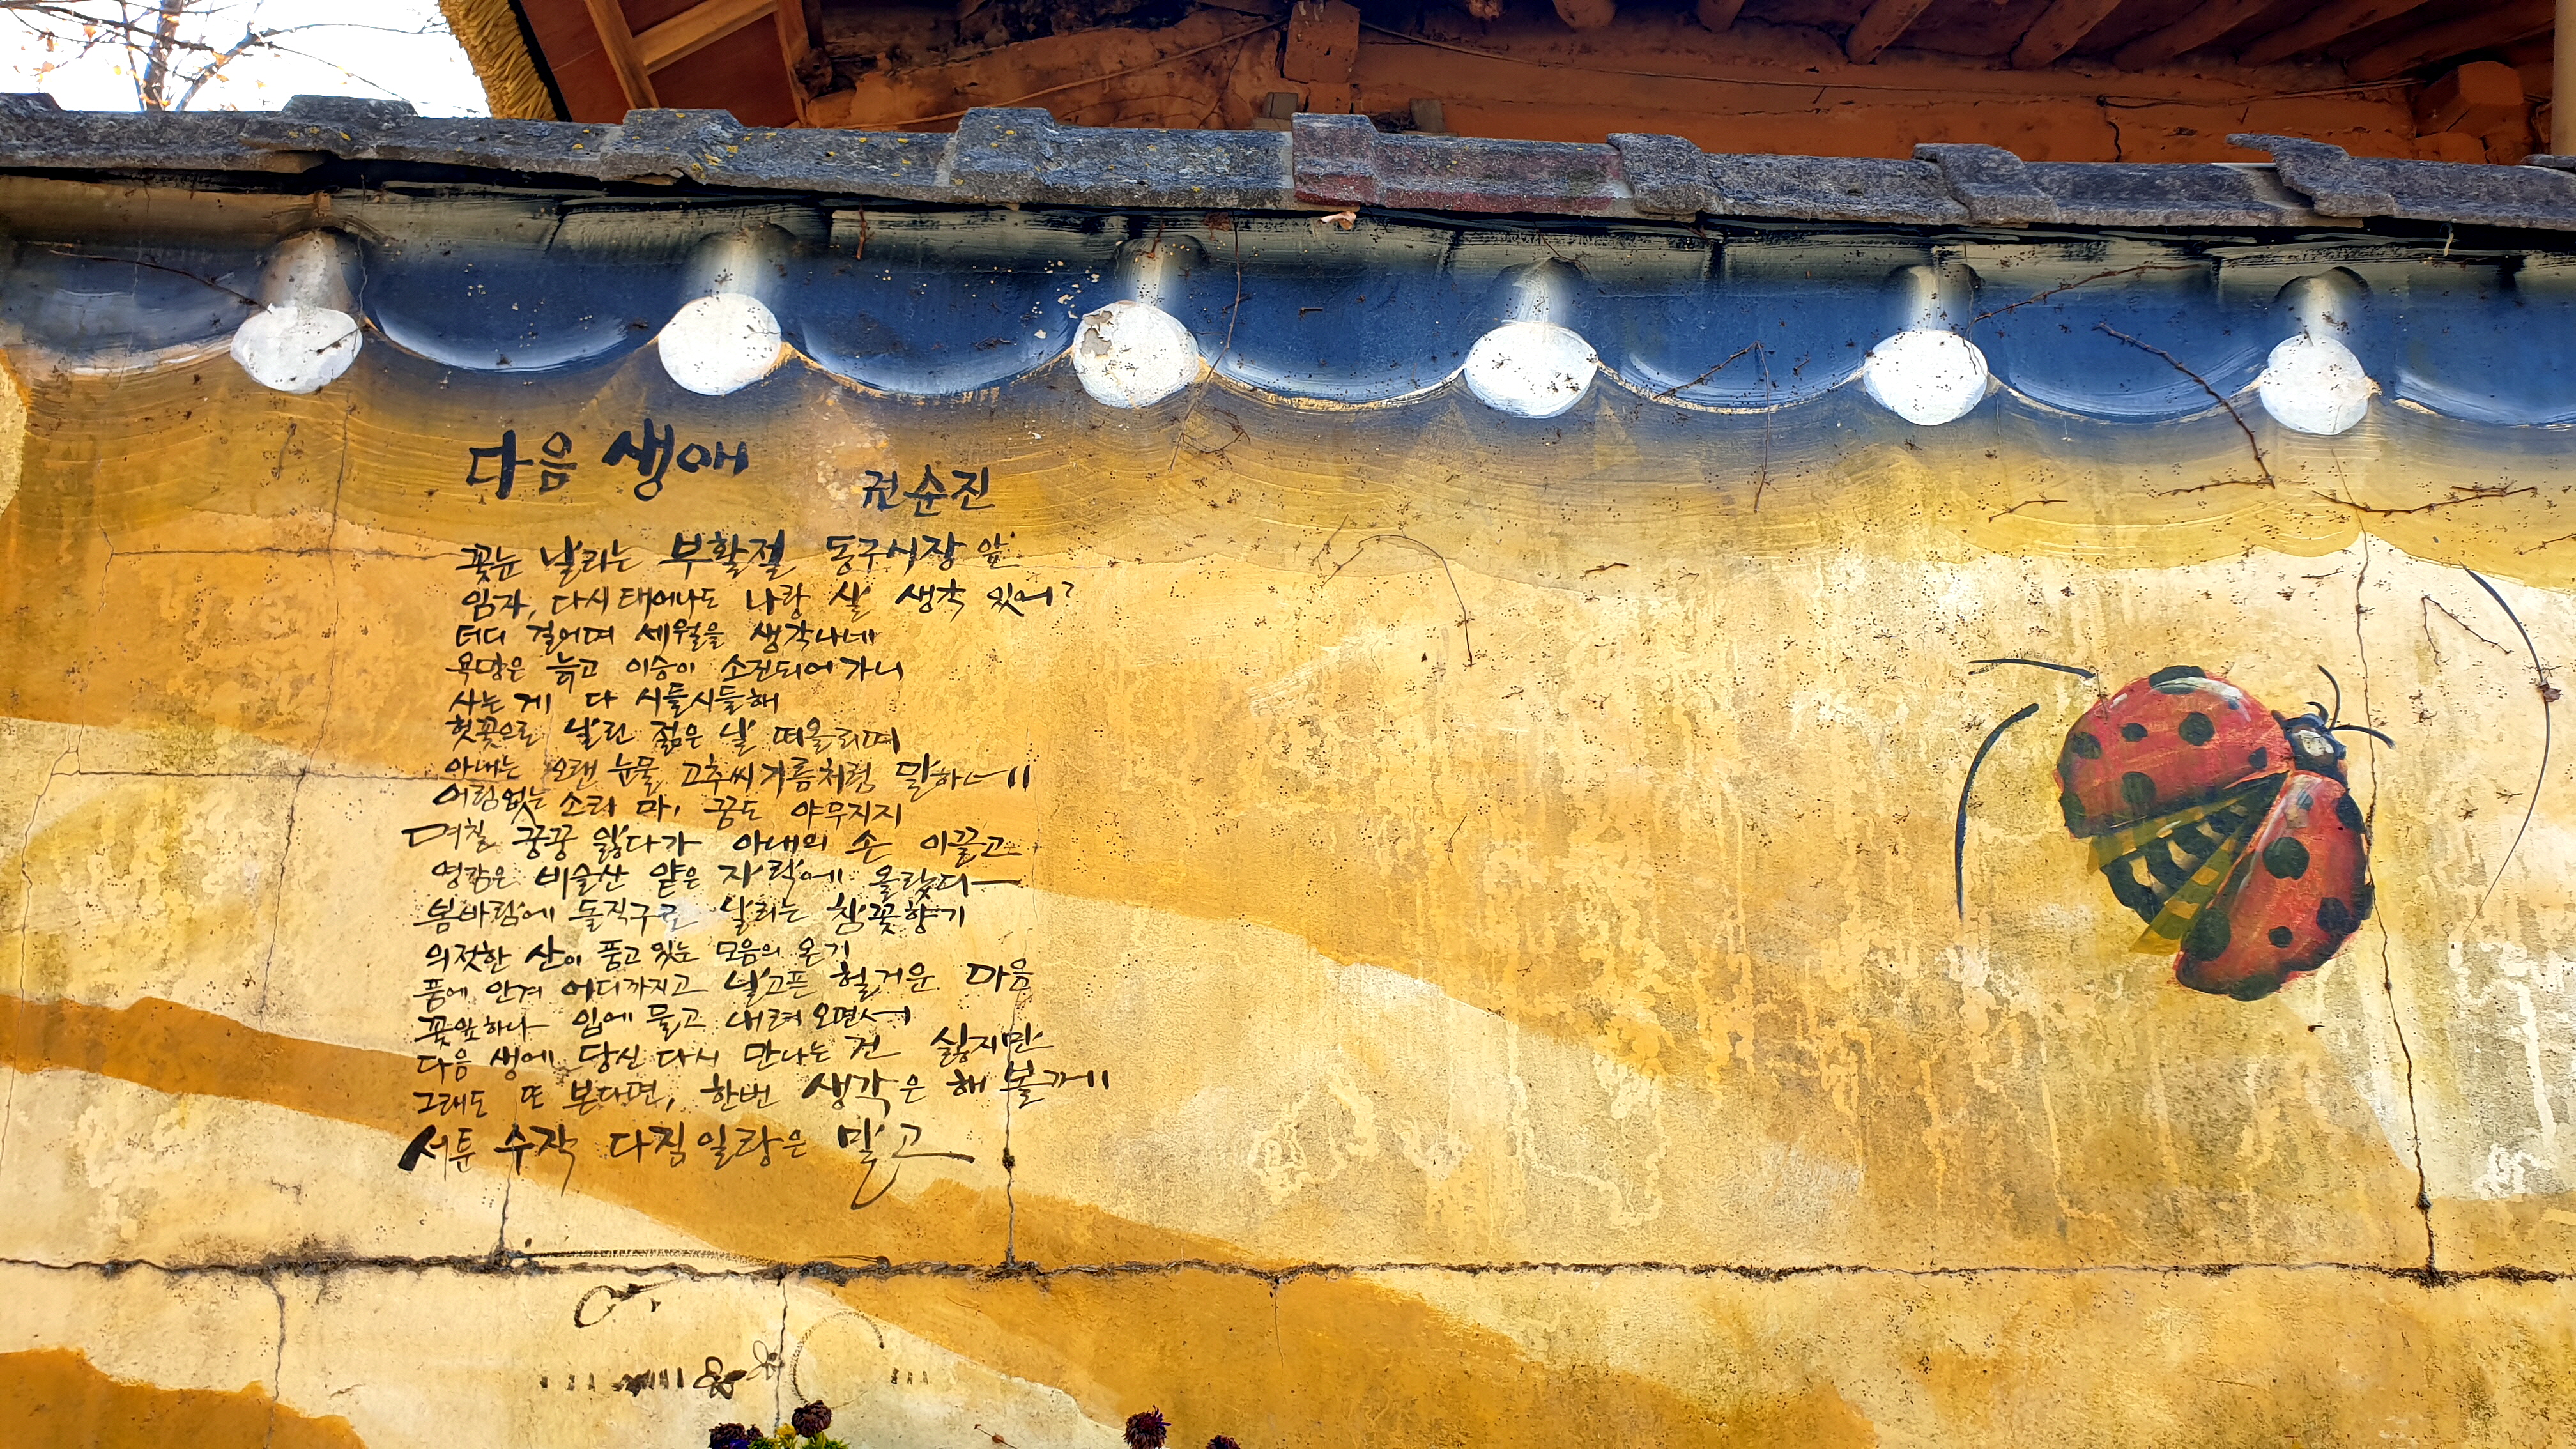 다음 생애
권순진
꽃눈 날리는 부활절 동구시장 앞
임자, 다시 태어나도 나랑 살 생각 있어?
더디 걸으며 세월을 생각나네
욕망은 늙고 이승이 소진되어 가니
사는 게 다 시들시들해
헛꽃으로 날린 젊은 날 떠올리며
아내는 오랜 눈물 고추씨기름처럼 말하네
어림없는 소리 마, 꿈도 야무지지
며칠 끙끙 앓다가 아내의 손 이끌고
영감은 비슬산 얕은 자락에 올랐다
봄바람에 돌직구로 날리는 참꽃향기
의젓한 산이 품고 있는 모음의 온기
품에 안겨 어디까지고 널고픈 헐거운 마음
꽃잎하나 입에 물고 내려오면서
다음 생에 당신 다시 만나는 건 싫지만
그래도 또 본다면, 한번 생각은 해 볼게
서툰 수작 다짐일랑은 말고